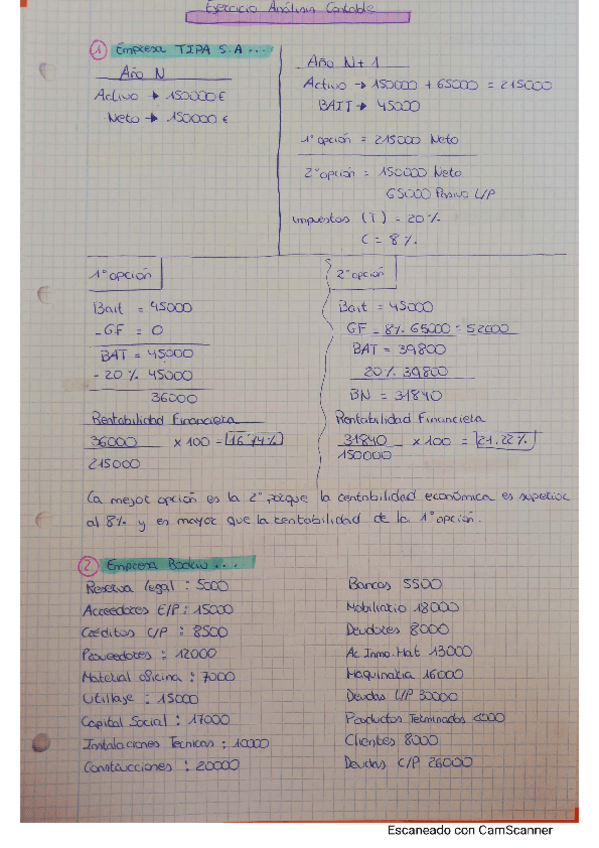 Ejercicio Análisis Contable
① Empresa TIPA S.A...
Año N
Activo → 150000€
Neto → 150000€
Año N+1
Activo → 150000 + 65000 = 215000
BAIT → 45000
1ª opción = 215000 Neto
2ª opción = 150000 Neto
65000 Pasivo L/P
impuestos (T) - 20%
C = 8%
1ª opción
Bait = 45000
- GF = 0
BAT = 45000
- 20% 45000
36000
Rentabilidad Financiera
36000 x 100 = 16'74%
215000
2ª opción
Bait = 45000
GF - 8% 65000 = 52000
BAT = 39800
20% 39800
BN = 31840
Rentabilidad Financiera
31840 x 100 = 21.22%
150000
La mejor opción es la 2ª porque la rentabilidad económica es superior
al 8% y es mayor que la rentabilidad de la 1ª opción.
② Empresa ...
Reserva legal : 5000
Acreedores E/P : 15000
Créditos C/P : 8500
Proveedores : 12000
Material oficina : 7000
Utillaje : 15000
Capital Social : 17000
Instalaciones Tecnicas : 10000
Construcciones : 20000
Bancos 5500
Mobiliario 18000
Deudores 8000
Ac Inmo. Mat 13000
Maquinaria 16000
Deudas L/P 30000
Productos Terminados
Clientes 8000
Deudas C/P 26000
Escaneado con CamScanner